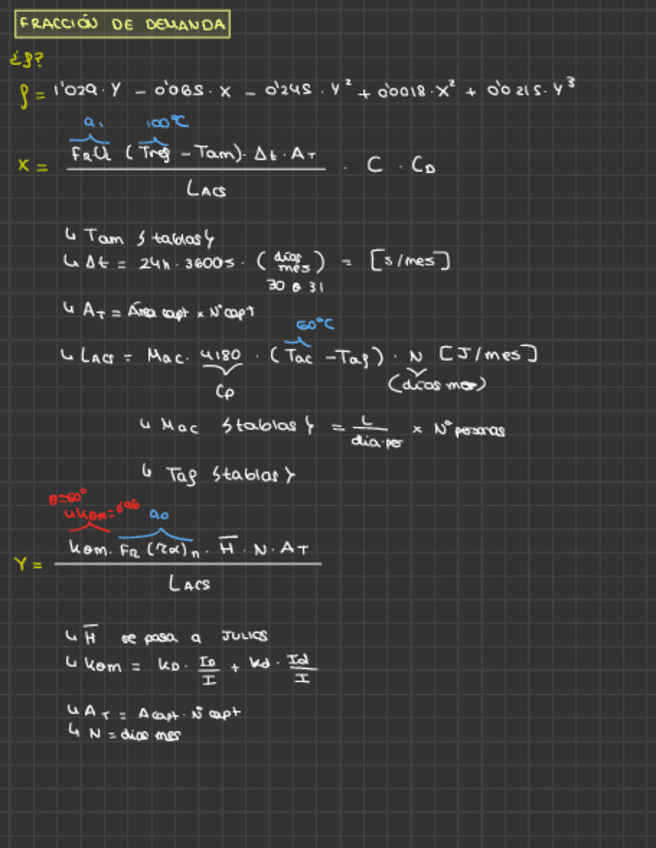 FRACCIÓN DE DEMANDA
¿f?
f = 1'029·Y - 0'065·X - 0'245·Y² + 0'0018·X² + 0'0215·Y³
a₁ 100ºC
X = FRUL (Tref - Tam)·Δt·AT / LACS · C · CD
↳ Tam {tablas}
↳ Δt = 24h·3600s·(días mes) = [s/mes]
30 o 31
↳ AT = Área capt x Nº capt
60ºC
↳ LACS = Mac·4180·(Tac - Taf)·N [J/mes]
Cp (días mes)
↳ Mac {tablas} = L / dia·per x Nº personas
↳ Taf {tablas}
θ=60º
↳ kθm=0'96 a₀
Y = kθm·FR(τα)n·H̅·N·AT / LACS
↳ H̅ se pasa a JULIOS
↳ kθm = kD·ID/I + kd·Id/I
↳ AT = Acapt·Nº capt
↳ N = días mes